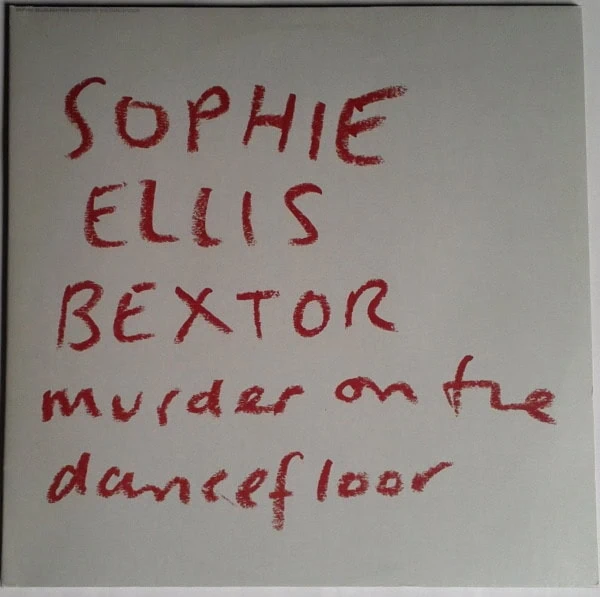 SOPHIE
ELLIS
BEXTOR
murder on the
dancefloor